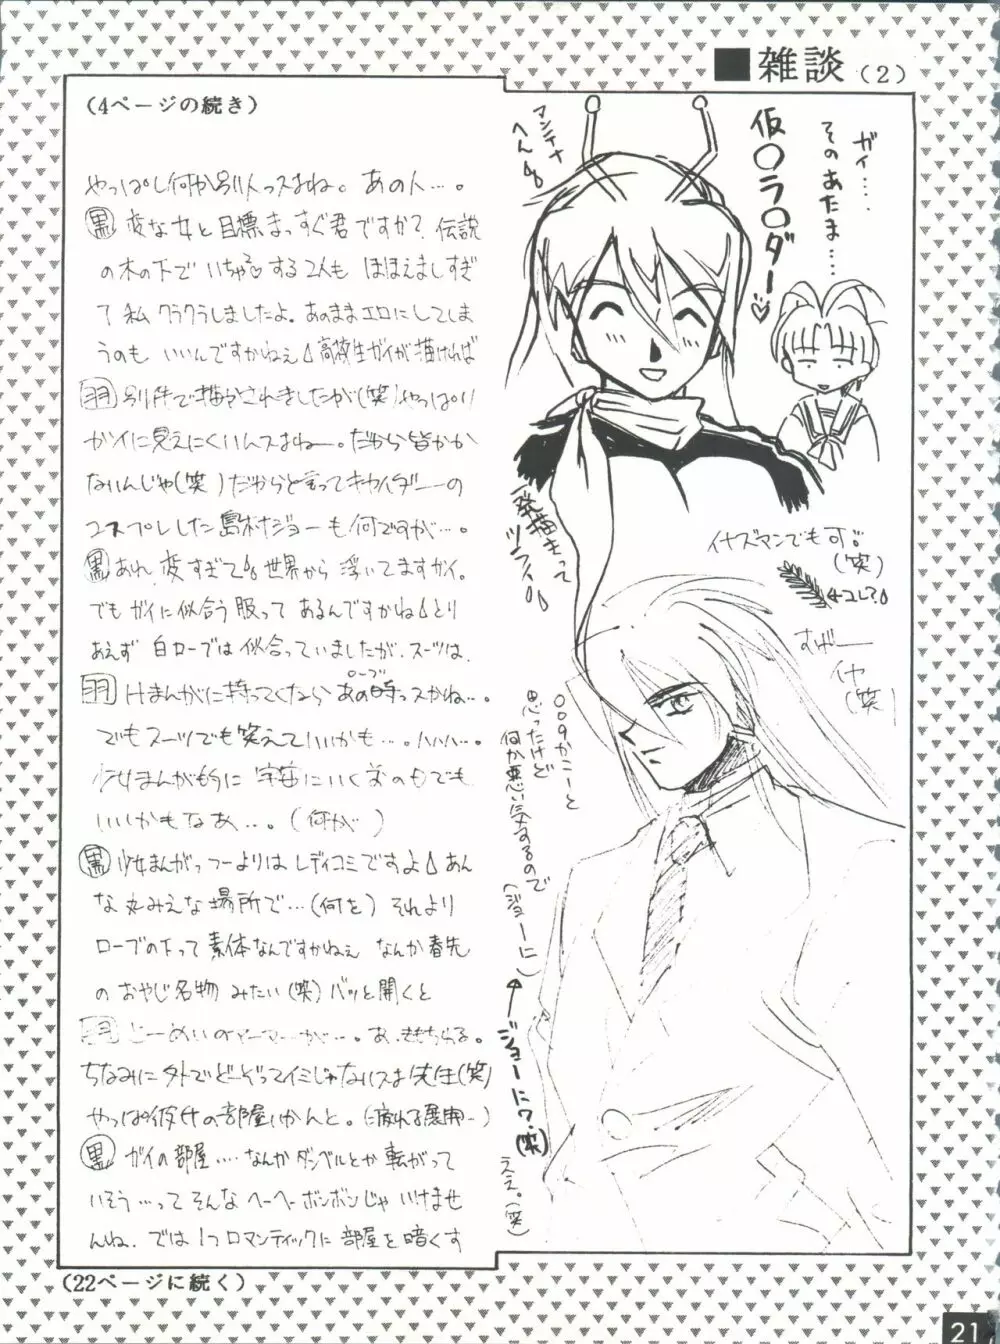 ■雑談(2)
(4ページの続き)
やっぱし何か別人っスよね。あの人…。
黒 変な女と目標まっすぐ君ですか?伝説
の木の下でいちゃつする2人もほほえましすぎ
て私クラクラしましたよ。あのままエロにしてしま
うのもいいんですかねぇ 高校生ガイが描ければ
羽 別件で描かされましたが(笑)やっぱり
ガイに見えにくいんスよねー。だから皆かか
ないんじゃ(笑)だからと言ってキカイダーの
コスプレした島本ナジョーも何ですが…。
黒 あれ、変すぎて 世界から浮いてますガイ。
でもガイに似合う服ってあるんですかね とり
あえず白ローブでは似合っていましたが、スーツは、
羽 けまんがに持ってくならあの時っスかね…。
ローブ
でもスーツでも笑えていいかも…。ハハハ…。
少女まんがもろに宇宙にいく
のもでも
いいかもなあ…。(何が)
黒 少女まんがっつーよりはレディコミですよ あん
な丸みえな場所で…(何を)それより
ローブの下って素体なんですかねぇ なんか春先
のおやじ名物みたい(笑)バッと開くと
羽
ちなみに外でどーぞってイミじゃないスよ先生(笑)
やっぱ彼女の部屋いかんと。(疲れる展開-)
黒 ガイの部屋….なんかダンベルとか転がって
いそう…ってそんなヘーヘーボンボンじゃいけませ
んね.では1つロマンティックに部屋を暗くす
(22ページに続く)
マンテナ
へん
仮○ラ○ダー
ガイ….
そのあたま….
一発描きって
ツライ
イナズマンでも可
(笑)
←コレ?
すげー
イヤ
(笑)
009かにーと
思ったけど
何か悪い気するので
(ジョーに)
←ジョーに?(笑)
ええ。(笑)
21